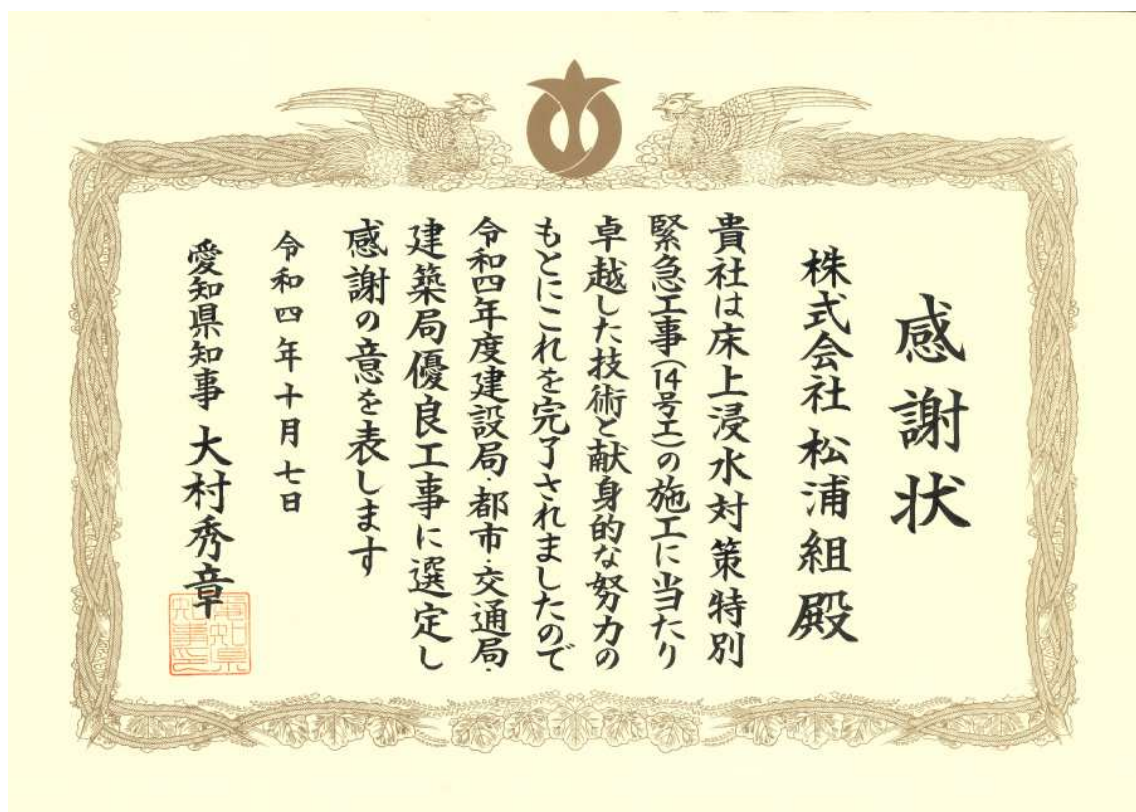 感謝状
株式会社 松浦組 殿
貴社は床上浸水対策特別
緊急工事(14号工)の施工に当たり
卓越した技術と献身的な努力の
もとにこれを完了されましたので
令和四年度建設局・都市・交通局・
建築局優良工事に選定し
感謝の意を表します
令和四年十月七日
愛知県知事 大村秀章
愛知県
知事之印